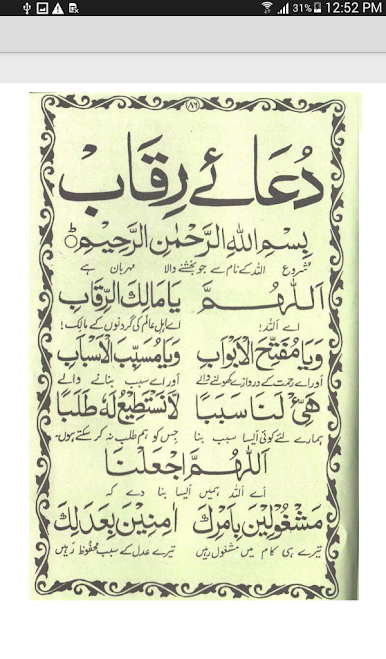 31% 12:52 PM
﴿٨٦﴾
دُعَائے رِقَاب
بِسْمِ اللهِ الرَّحْمٰنِ الرَّحِيْمِ
شروع اللہ کے نام سے جو بخشنے والا مہربان ہے
اَللّٰهُمَّ يَا مَالِكَ الرِّقَابِ
اے اللہ! اے اہل عالم کی گردنوں کے مالک!
وَيَا مُفَتِّحَ الْاَبْوَابِ وَيَا مُسَبِّبَ الْاَسْبَابِ
اور اے رحمت کے دروازے کھولنے والے اور اے سبب بنانے والے
هَيِّئْ لَنَا سَبَبًا لَا نَسْتَطِيْعُ لَهٗ طَلَبًا
ہمارے لئے کوئی ایسا سبب بنا جس کو ہم طلب نہ کر سکتے ہوں۔
اَللّٰهُمَّ اجْعَلْنَا
اے اللہ ہمیں ایسا بنا دے کہ
مَشْغُوْلِيْنَ بِاَمْرِكَ اٰمِنِيْنَ بِعَدْلِكَ
تیرے ہی کام میں مشغول رہیں تیرے عدل کے سبب محفوظ رہیں